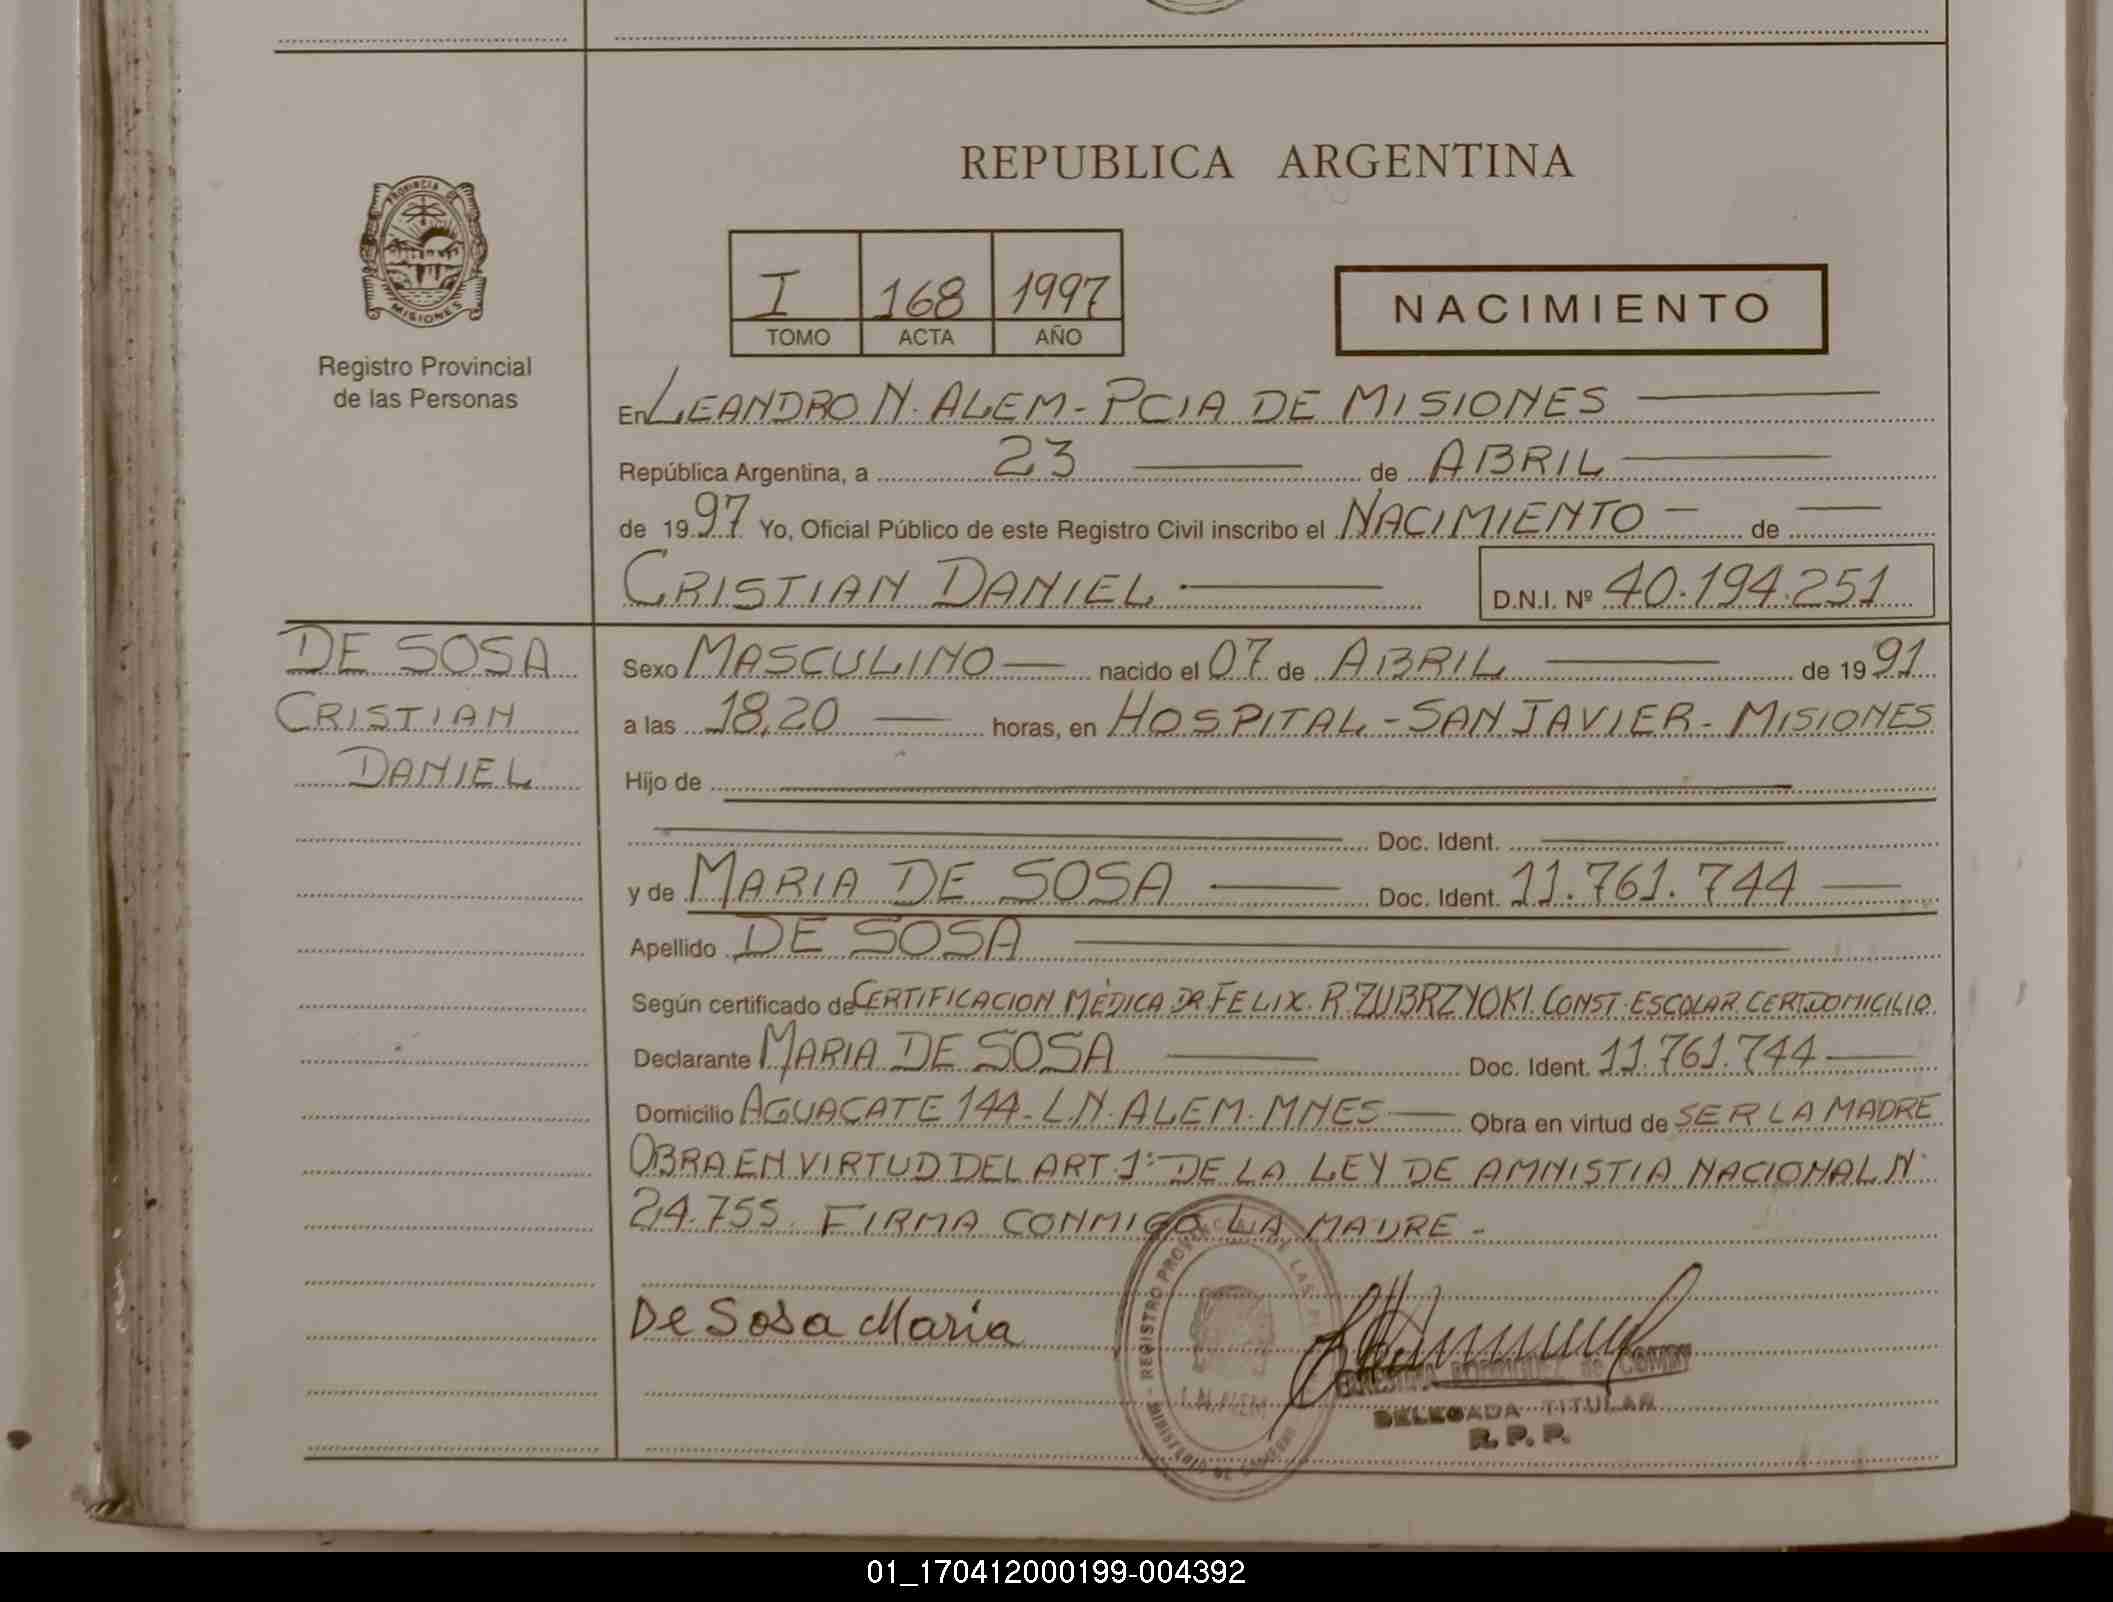 REPUBLICA ARGENTINA
PROVINCIA DE
MISIONES
Registro Provincial
de las Personas
I 168 1997
TOMO ACTA AÑO
NACIMIENTO
En LEANDRO N. ALEM - PCIA DE MISIONES
República Argentina, a 23 de ABRIL
de 1997 Yo, Oficial Público de este Registro Civil inscribo el NACIMIENTO de
CRISTIAN DANIEL D.N.I. Nº 40.194.251
DE SOSA
CRISTIAN
DANIEL
Sexo MASCULINO nacido el 07 de ABRIL de 1991
a las 18,20 horas, en HOSPITAL - SAN JAVIER - MISIONES
Hijo de
Doc. Ident.
y de MARIA DE SOSA Doc. Ident. 11.761.744
Apellido DE SOSA
Según certificado de CERTIFICACION MÉDICA DR FELIX. R. ZUBRZYOKI. CONST. ESCOLAR. CERT.DOMICILIO
Declarante MARIA DE SOSA Doc. Ident. 11.761.744
Domicilio AGUACATE 144 - L.N. ALEM. MNES Obra en virtud de SER LA MADRE
OBRA EN VIRTUD DEL ART. 1º DE LA LEY DE AMNISTIA NACIONAL Nº
24.755. FIRMA CONMIGO LA MADRE -
De Sosa Maria
REGISTRO PROVINCIAL DE LAS
L.N. ALEM
MINISTERIO DE GOBIERNO
RODRIGUEZ de
DELEGADA TITULAR
R. P. P.
01_170412000199-004392